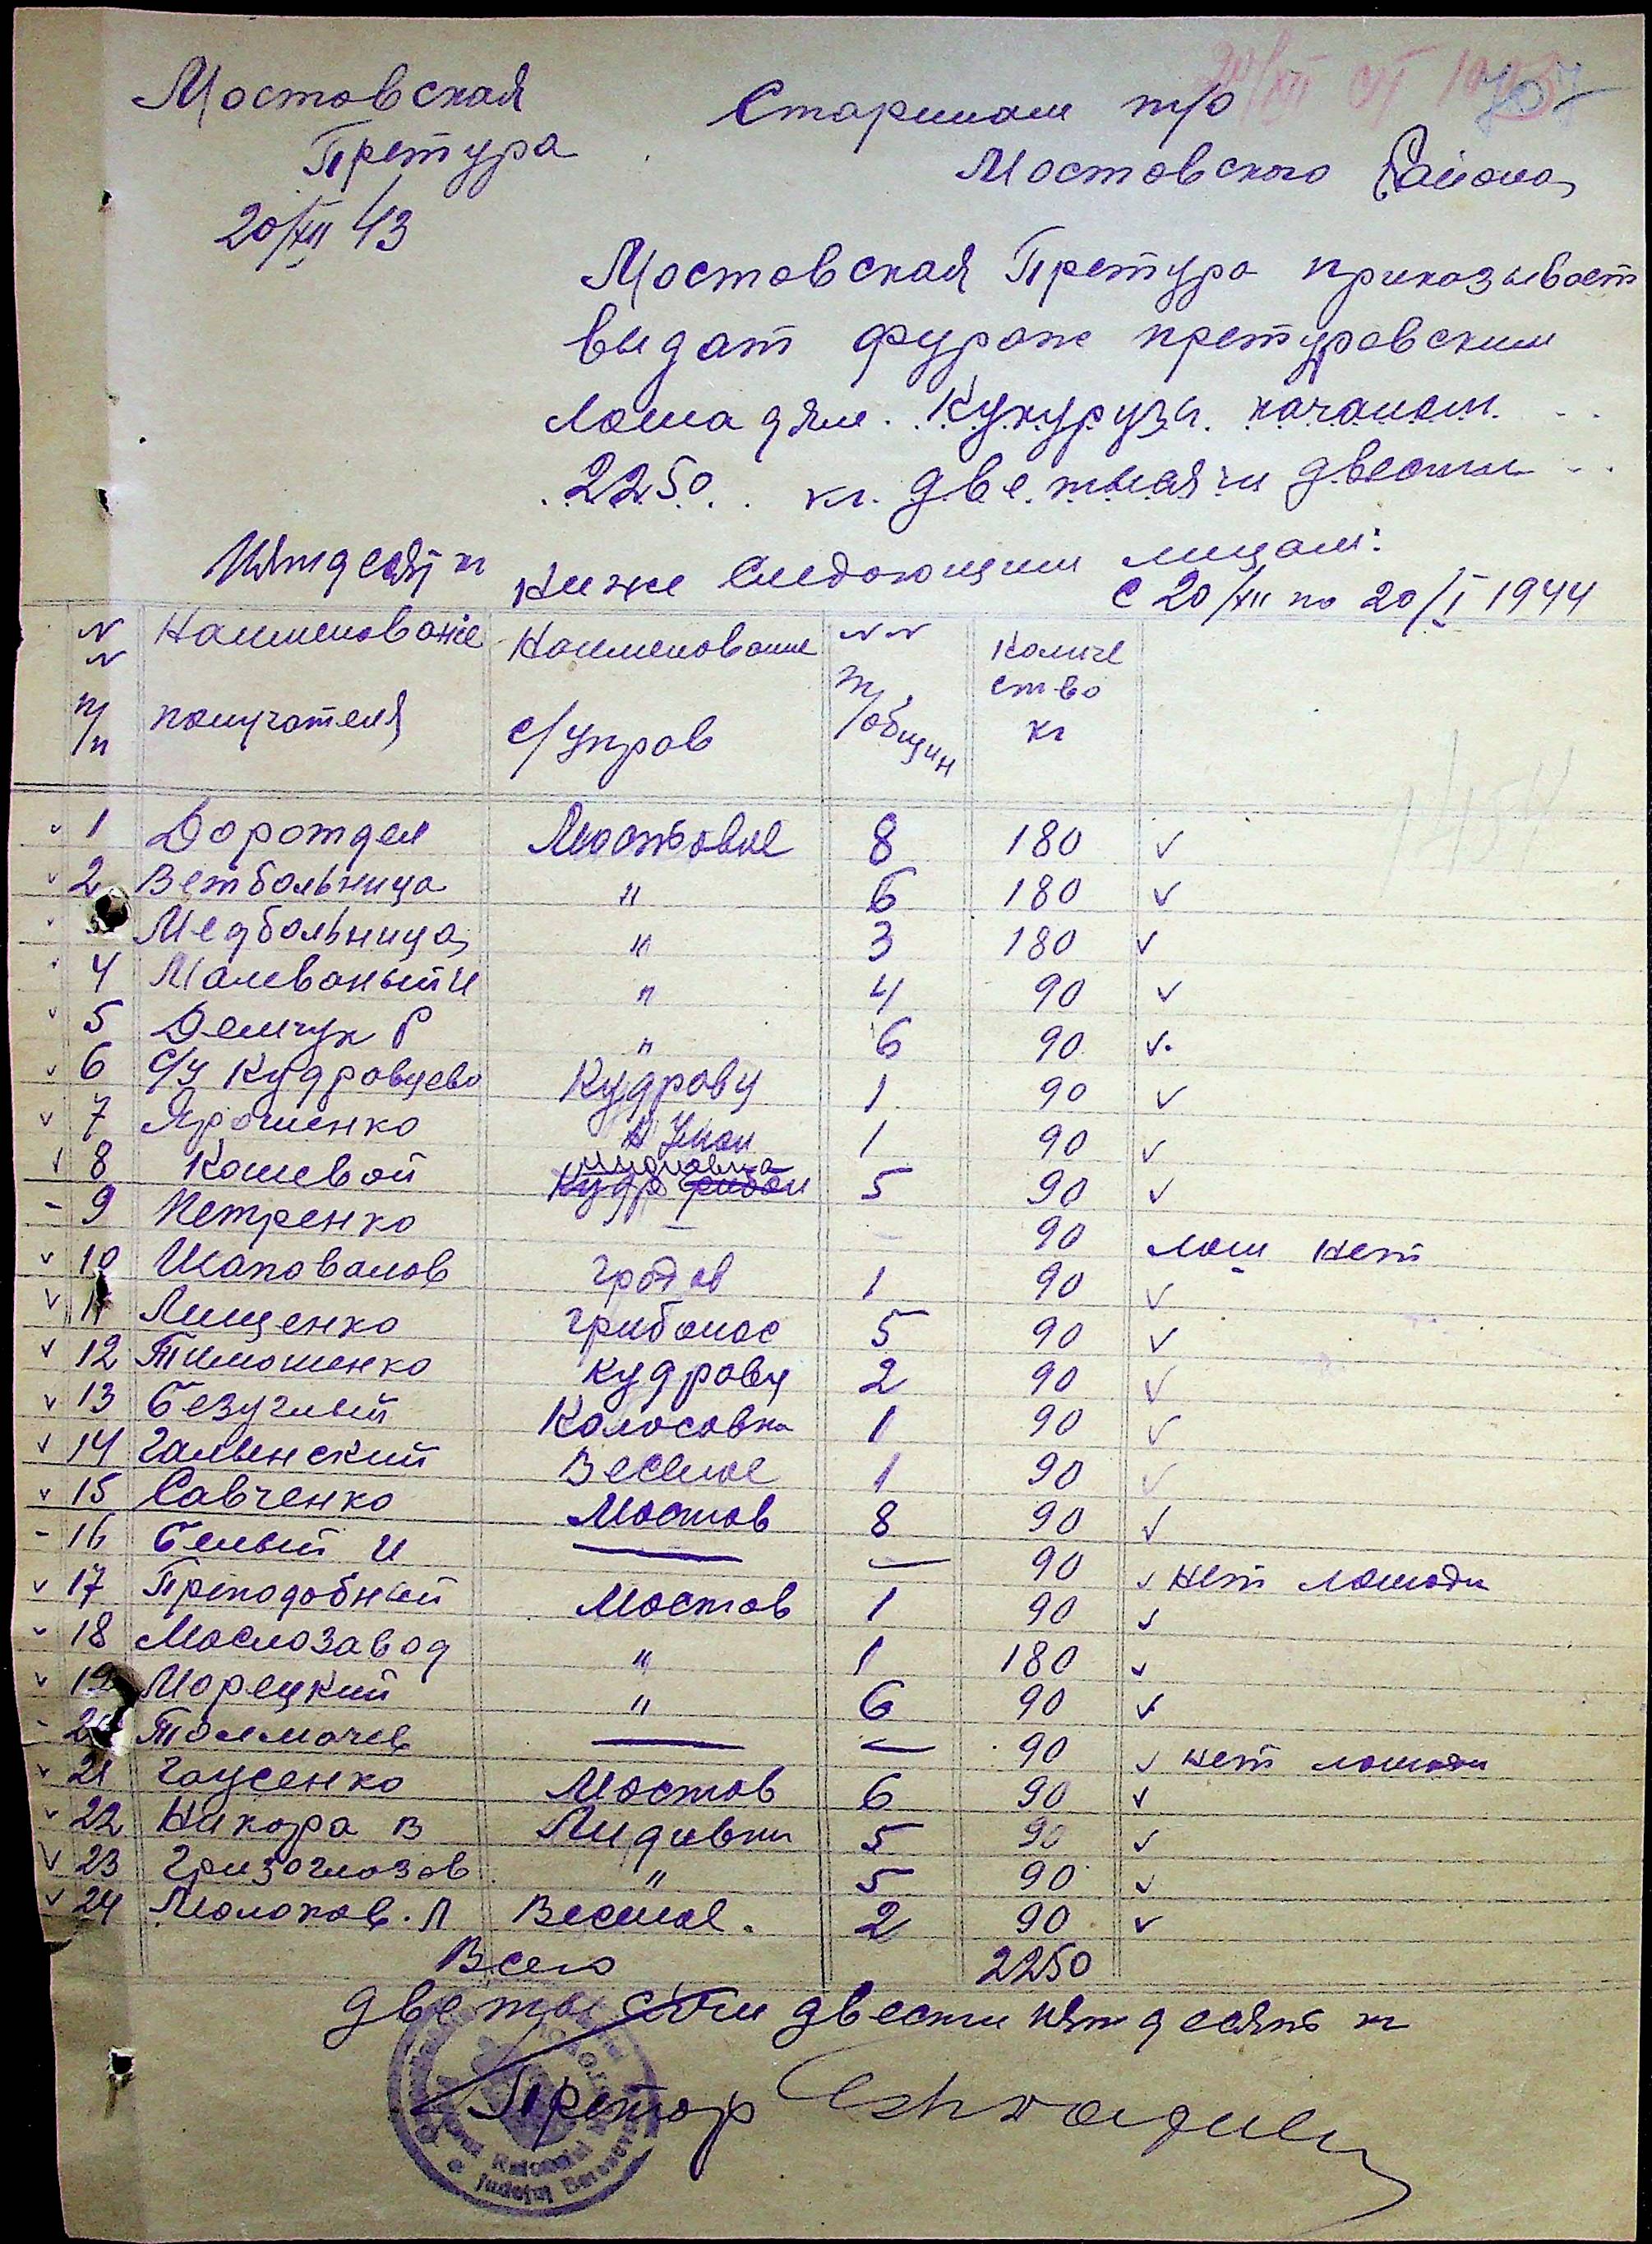 20/XII
Мостовская
Претура
20/XII 43
Старшим т/о
Мостовского Района
Мостовская Претура приказывает
выдат фураж претуровским
лошадям. Кукуруза качанам
2250 кг. две тысячи двести
пятдесят кг ниже следующим лицам:
с 20/XII по 20/I 1944
N N п/п Наименованіе получателя Наименование с/управ N N т/общин Количество кг
1 Доротдел Мостовое 8 180 v
2 Ветбольница " 6 180 v
3 Медбольница " 3 180 v
4 Малеваный И " 4 90 v
5 Демчук Р " 6 90 v
6 с/у Кудровцево Кудровц 1 90 v
7 Ярошенко 1 90 v
8 Кошевой 5 90 v
9 Петренко — 90 лош нет
10 Шаповалов Градов 1 90 v
11 Лищенко Грибонос 5 90 v
12 Тимошенко Кудровц 2 90 v
13 Безуглый Колосовка 1 90 v
14 Галынский Веселое 1 90 v
15 Савченко Мостов 8 90 v
16 Белый И — — 90 v нет лошади
17 Преподобный Мостов 1 90 v
18 Маслозавод " 1 180 v
19 Морецкий " 6 90 v
20 Толмочев — — 90 v нет лошади
21 Гаусенко Мостов 6 90 v
22 Никора В Лидовки 5 90 v
23 Гризоглозов " 5 90 v
24 Молоков. Л Веселое. 2 90 v
Всего 2250
две тысячи двести пятдесять кг
Претор
Judeţul